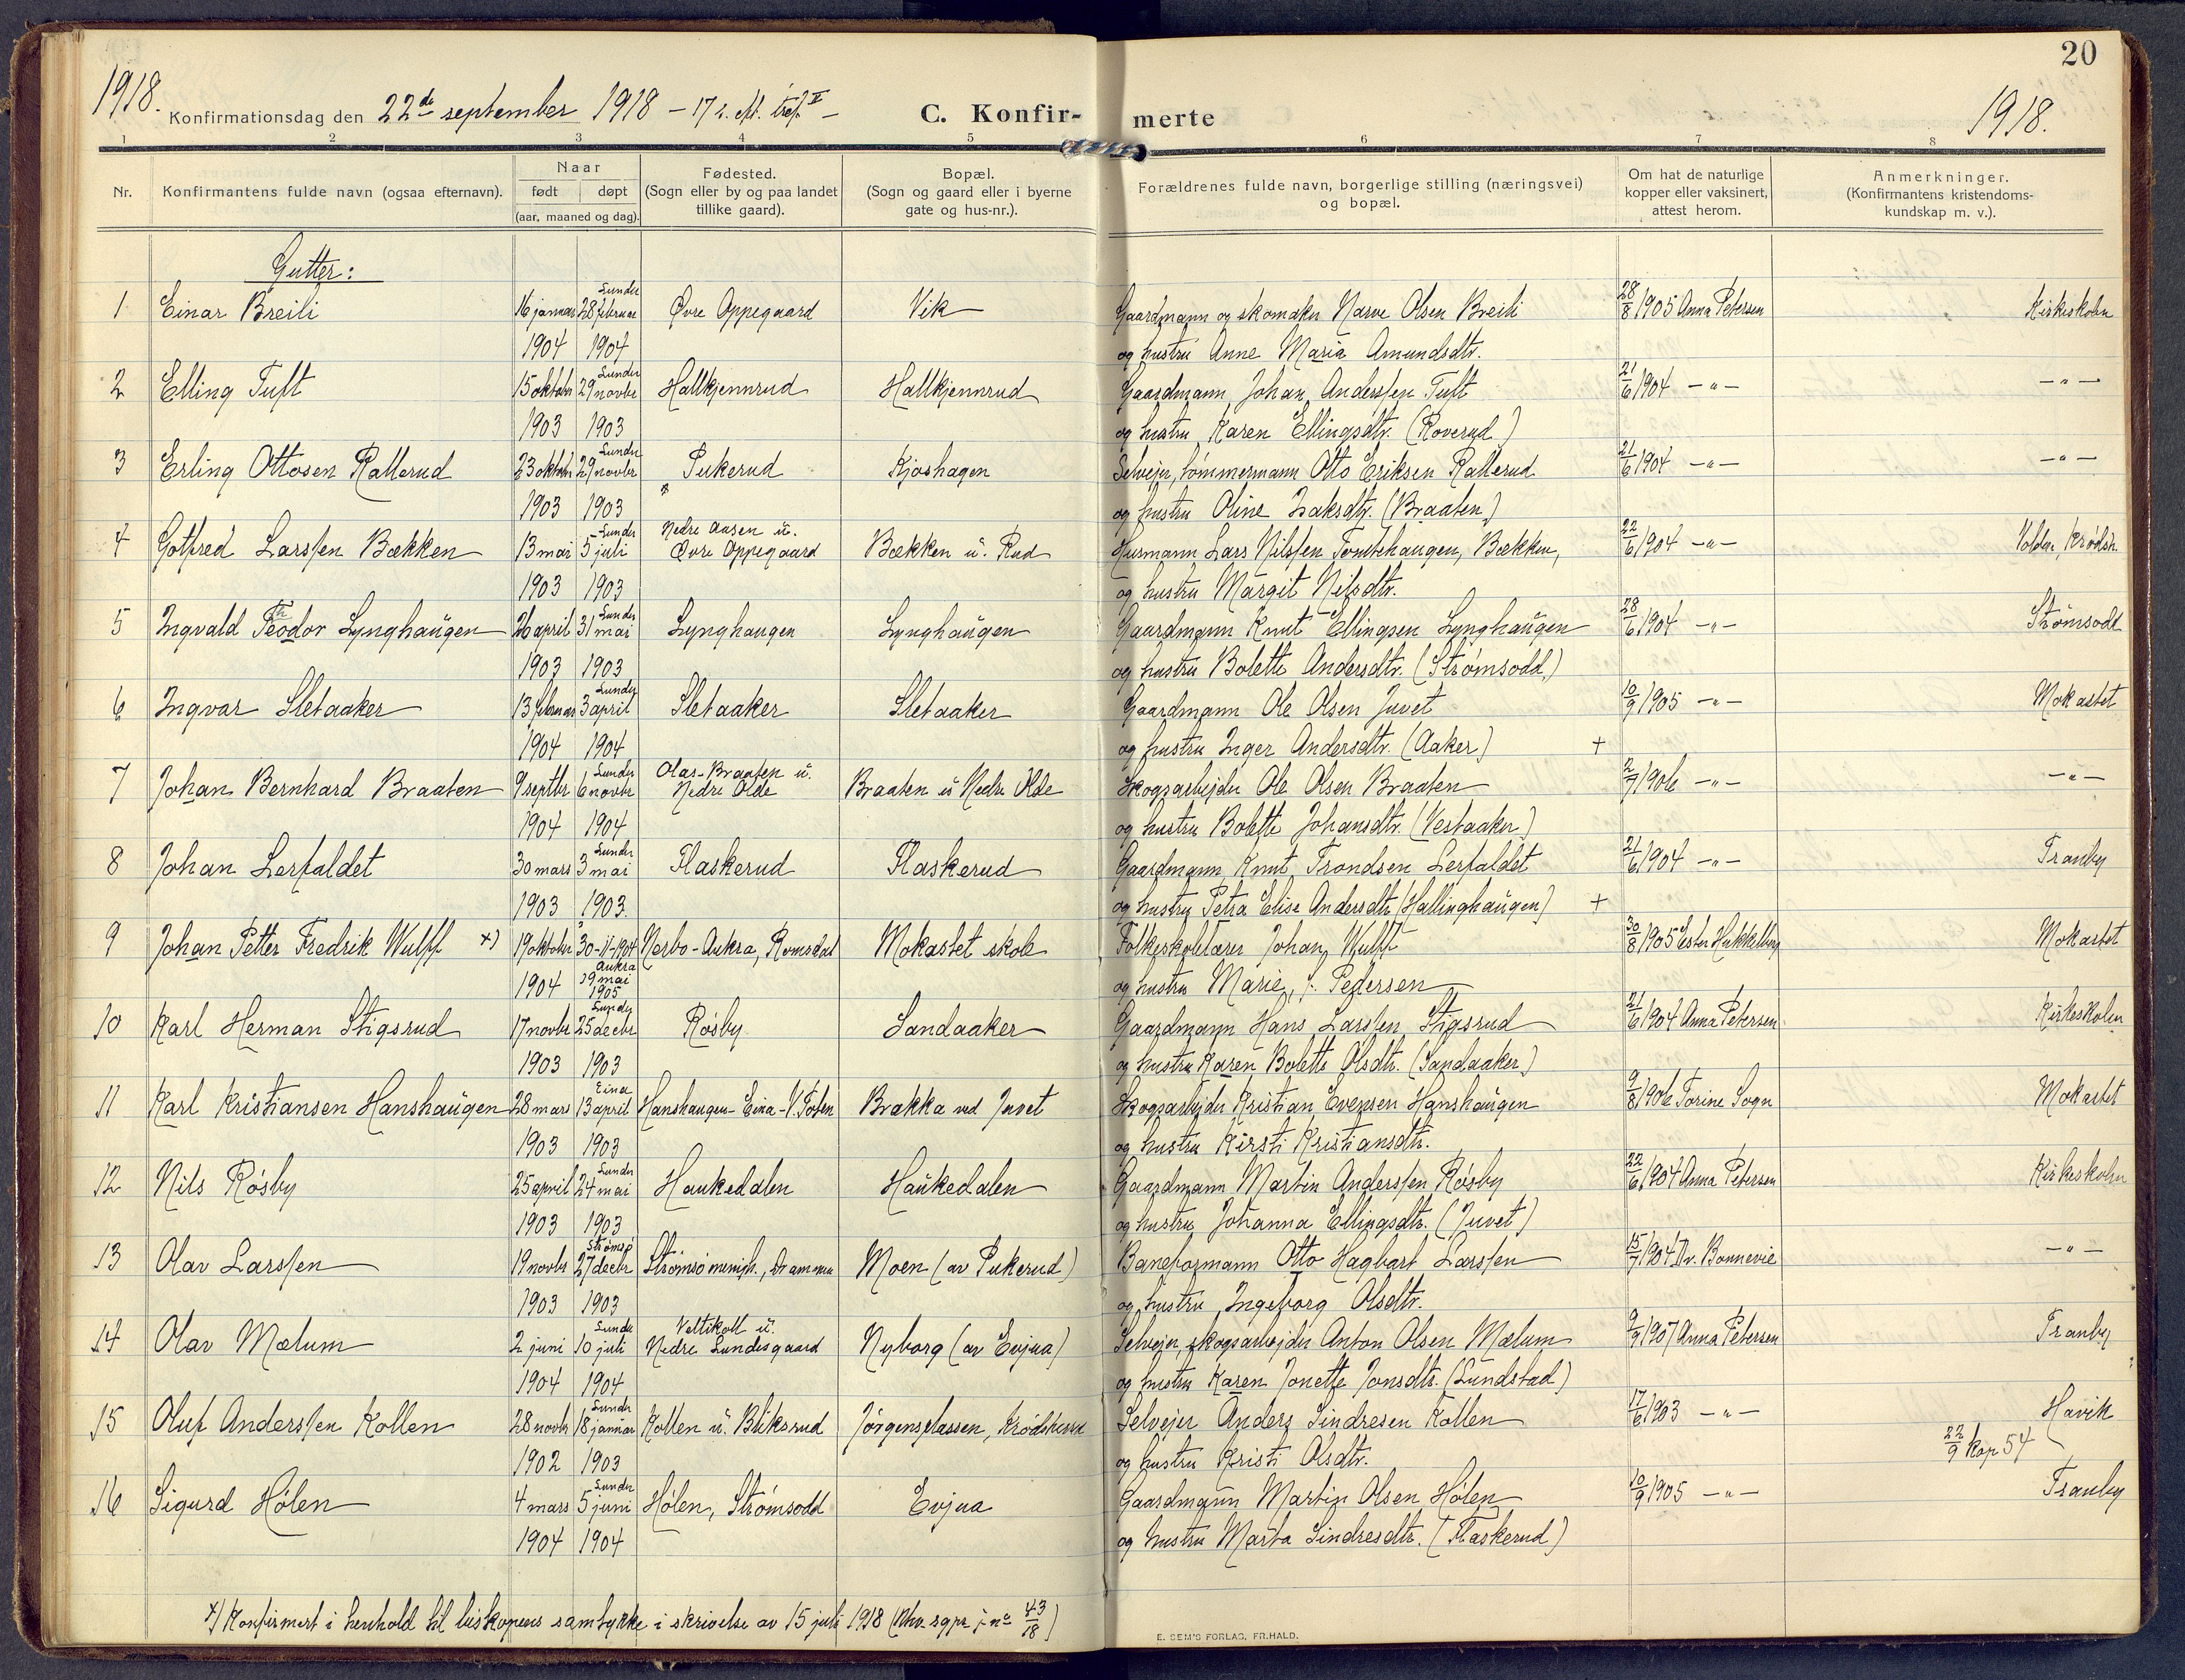 20
1918. Konfirmationsdag den 22de september 1918 – C. Konfir- merte 1918.
1 2 3 4 5 6 7 8
Nr. Konfirmantens fulde navn (ogsaa efternavn). Naar født døpt (aar, maaned og dag). Fødested. (Sogn eller by og paa landet tillike gaard). Bopæl. (Sogn og gaard eller i byerne gate og hus-nr.). Forældrenes fulde navn, borgerlige stilling (næringsvei) og bopæl. Om hat de naturlige kopper eller vaksinert, attest herom. Anmerkninger. (Konfirmantens kristendoms-kundskap m. v.).
Gutter:
Lunder
1 Einar Breili 16 januar 28 februar Øvre Oppegaard Vik Gaardmann og skomaker Narve Olsen Breili 28/8 1905 Anna Petersen Kirkeskolen
1904 1904 og hustru Anne Maria Amundsdtr.
Lunder
2 Elling Tuft 15 oktober 29 novbr Hallkjennrud Hallkjennrud Gaardmann Johan Anderssen Tuft 21/6 1904 –"– –"–
1903 1903 og hustru Karen Ellingsdtr. (Roverud)
Lunder
3 Erling Ottosen Rallerud 23 oktobr 29 novbr Pukerud Kjoshagen Selveier, tømmermann Otto Eriksen Rallerud 21/6 1904 –"– –"–
1903 1903 og hustru Oline Isaksdtr. (Braaten)
Nedre Aasen u.
Lunder
4 Gotfred Larssen Bækken 13 mai 5 juli Øvre Oppegaard Bækken u. Rud Husmann Lars Nilssen Tomtehaugen, Bækken, 22/6 1904 –"– Krødsh.
1903 1903 og hustru Margit Nilsdtr.
Lunder
5 Ingvald Teodor Lynghaugen 26 april 31 mai Lynghaugen Lynghaugen Gaardmann Knut Ellingsen Lynghaugen 28/6 1904 –"– Strømsodd
1903 1903 og hustru Bolette Andersdtr. (Strømsodd)
Lunder
6 Ingvar Sletaaker 13 februar 3 april Sletaaker Sletaaker Gaardmann Ole Olsen Juvet 10/9 1905 –"– Mokastet
1904 1904 og hustru Inger Andersdtr. (Aaker) +
Olas-Braaten u.
Lunder
7 Johan Bernhard Braaten 9 septbr 6 novbr Nedre Olde Braaten u. Nedre Olde Skogsarbeider Ole Olsen Braaten 2/7 1906 –"– –"–
1904 1904 og hustru Bolette Johansdtr. (Vestaaker)
Lunder
8 Johan Lerfaldet 30 mars 3 mai Flaskerud Flaskerud Gaardmann Knut Trondsen Lerfaldet 21/6 1904 –"– Tranby
1903 1903. og hustru Petra Elise Andersdtr. (Hallinghaugen) +
9 Johan Petter Fredrik Wulff x) 19 oktober 30-11-1904 Nerbo-Aukra, Romsdal Mokastet skole Folkeskolelærer Johan Wulff 30/8 1905 Ester Hakkelberg Mokastet
1904 Aukra 19 mai 1905 og hustru Marie, f. Pedersen
Lunder
10 Karl Herman Stigsrud 17 novbr 25 decbr Røsby Sandaaker Gaardmann Hans Larssen Stigsrud 21/6 1904 Anna Petersen Kirkeskolen
1903 1903 og hustru Karen Bolette Olsdtr. (Sandaaker)
Eina
11 Karl Kristiansen Hanshaugen 28 mars 13 april Hanshaugen-Eina-V. Toten Brakka ved Juvet Skogsarbeider Kristian Evensen Hanshaugen 9/8 1906 Torine Sogn Mokastet
1903 1903 og hustru Kirsti Kristiansdtr.
Lunder
12 Nils Røsby 25 april 24 mai Haukedalen Haukedalen Gaardmann Martin Anderssen Røsby 22/6 1904 Anna Petersen Kirkeskolen
1903 1903 og hustru Johanna Ellingsdtr. (Juvet)
Strømsø
13 Olav Larssen 19 novbr 27 decbr Strømsø menigh., Drammen Moen (av Pukerud) Baneformann Otto Hagbart Larssen 15/7 1904 Dr. Bonnevie –"–
1903 1903 og hustru Ingeborg Olsdtr.
Veltikoll u.
Lunder
14 Olav Mælum 2 juni 10 juli Nedre Lundesgaard Nyborg (av Evjua) Selveier, skogsarbeider Anton Olsen Mælum 9/9 1907 Anna Petersen Tranby
1904 1904 og hustru Karen Jonette Jonsdtr. (Lundstad)
Lunder
15 Oluf Anderssen Kollen 28 novbr 18 januar Kollen u. Bliksrud Jørgensplassen, Krødsherred Selveier Anders Sindresen Kollen 17/6 1903 –"– Havik
1902 1903 og hustru Kristi Olsdtr. 22/9 kap 54
Lunder
16 Sigurd Hólen 4 mars 5 juni Hólen, Strømsodd Evjua Gaardmann Martin Olsen Hólen 10/9 1905 –"– Tranby
1904 1904 og hustru Marta Sindresdtr. (Flaskerud)
x) Konfirmert i henhold til biskopens samtykke i skrivelse av 15 juli 1918 j-no 43/18)
E. SEM'S FORLAG, FR.HALD.